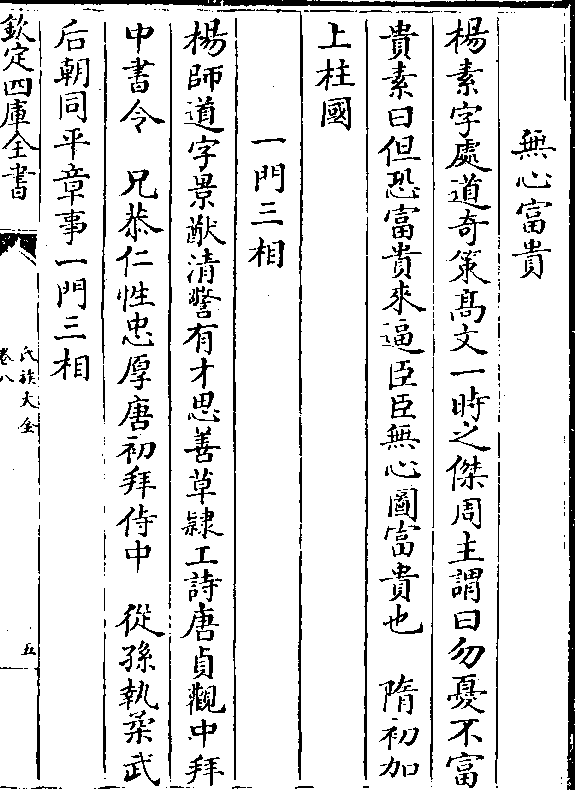 無心富貴
楊素字處道奇策髙文一時之傑周主謂曰勿憂不富
貴素曰但恐富貴來逼臣臣無心圖富貴也　隋初加
上柱國
一門三相
楊師道字景猷清警有才思善草隷工詩唐貞觀中拜
中書令　兄恭仁性忠厚唐初拜侍中　從孫執柔武
后朝同平章事一門三相
欽定四庫全書
氏族大全
卷八
五